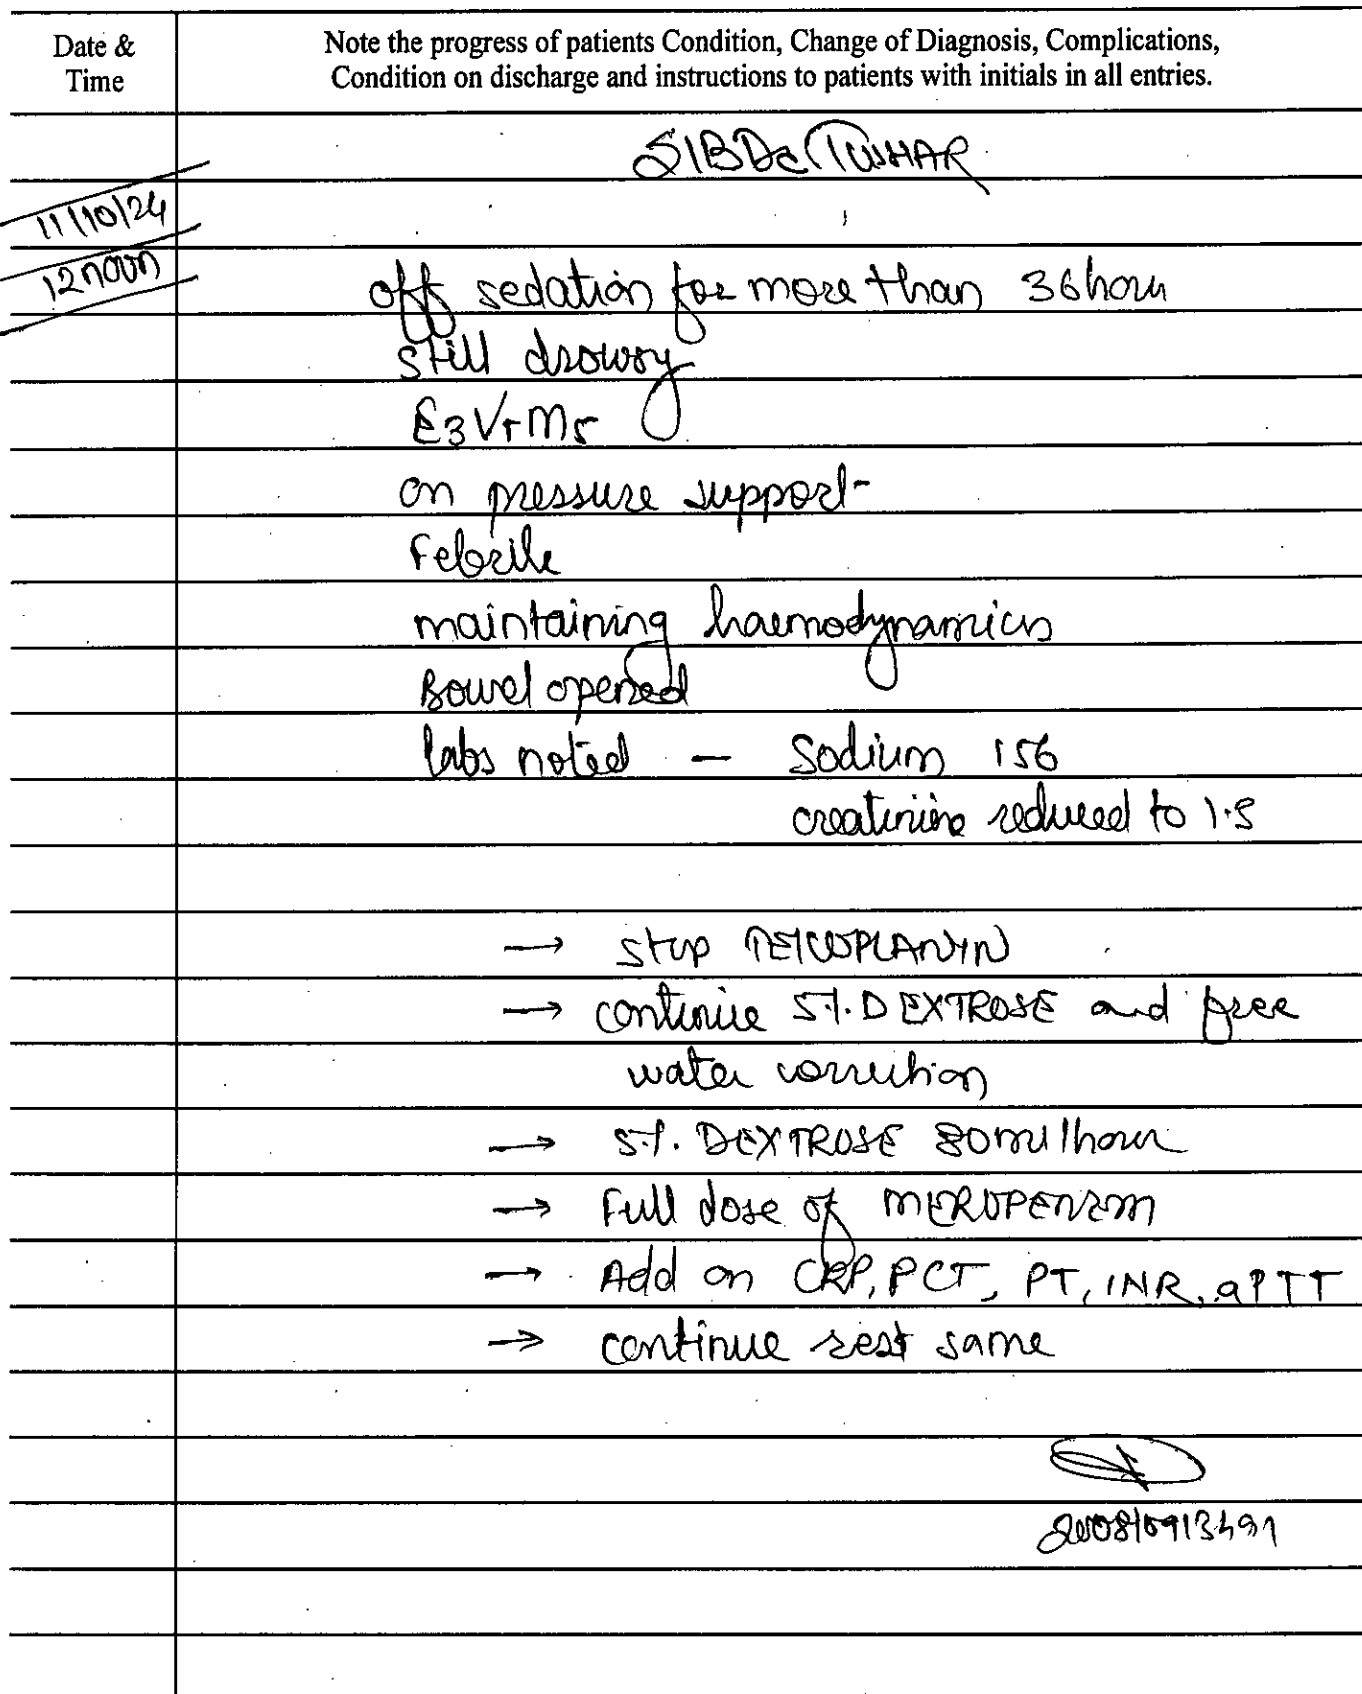 Date &
Time
Note the progress of patients Condition, Change of Diagnosis, Complications,
Condition on discharge and instructions to patients with initials in all entries.
S/B Dr TUSHAR
11/10/24
12 noon
off sedation for more than 36 hour
still drowsy
E3VTM5
on pressure support
Febrile
maintaining haemodynamics
Bowel opened
labs noted — Sodium 156
creatinine reduced to 1.5
→ stop TEICOPLANIN
→ continue 5% DEXTROSE and free
water correction
→ 5% DEXTROSE 80ml/hour
→ Full dose of MEROPENEM
→ Add on CRP, PCT, PT, INR, aPTT
→ continue rest same